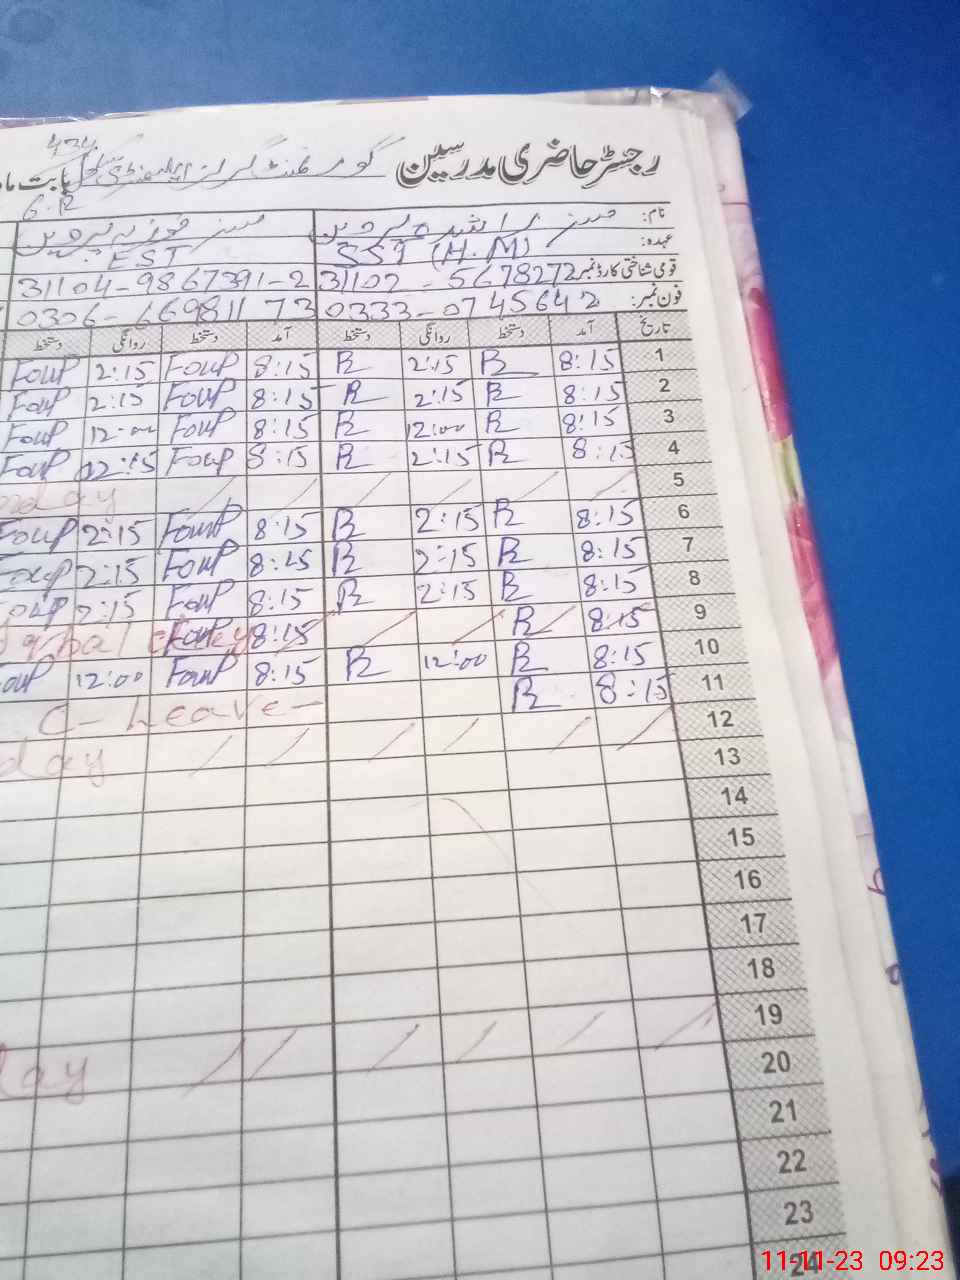 رجسٹر حاضری مدرسین گورنمنٹ گرلز ایلیمنٹری سکول بابت ماہ
434
6.R
نام: مسز راشدہ پروین مسز فوزیہ پروین
عہدہ: SST (H.M) EST
قومی شناختی کارڈ نمبر: 31102-5678272 31104-9867391-2
فون نمبر: 0333-0745642 0306-6698117 73
تاریخ آمد دستخط روانگی دستخط آمد دستخط روانگی دستخط
1 8:15 R 2:15 R 8:15 Foup 2:15 Foup
2 8:15 R 2:15 R 8:15 Foup 2:15 Foup
3 8:15 R 12:00 R 8:15 Foup 12:00 Foup
4 8:15 R 2:15 R 8:15 Foup 12:15 Foup
5
6 8:15 R 2:15 R 8:15 Foup 2:15 Foup
7 8:15 R 2:15 R 8:15 Foup 2:15 Foup
8 8:15 R 2:15 R 8:15 Foup 2:15 Foup
9 8:15 R 8:15 Foup qbal day
10 8:15 R 12:00 R 8:15 Foup 12:00 Foup
11 8:15 R C-Leave-
12 day
13
14
15
16
17
18
19 day
20
21
22
23
24
11-11-23 09:23